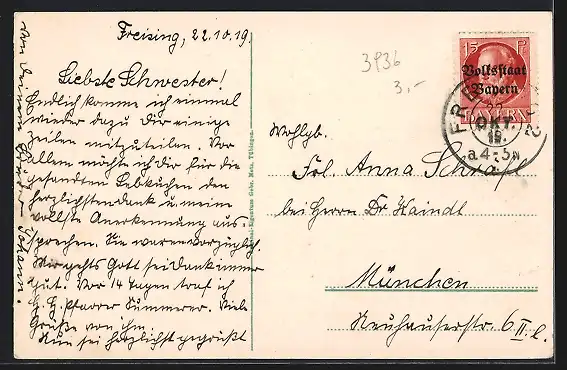 Freising, 22.10.19.
Liebste Schwester!
Endlich komme ich einmal
wieder dazu Dir einige
Zeilen mitzuteilen. Vor
allem möchte ich Dir für die
gesandten Lebkuchen den
herzlichsten dank u. meine
vollste Anerkennung aus-
sprechen. Sie waren vorzüglich.
Mir gehts Gott sei dank immer
gut. Vor 14 Tagen traf ich
H. H. Pfarrer Summerer. Viele
Grüße von ihm.
Nun sei herzlichst gegrüßt
von deinem Bruder Johann.
Gebr. Metz, Tübingen.
3936
3.-
15 Pf
Volksstaat
Bayern
BAYERN
FREISING 2
22
OKT.
19.
a 4-5 N
Wohlgb.
Frl. Anna
bei Herrn Dr Haindl
München
Neuhauserstr. 6 II. l.